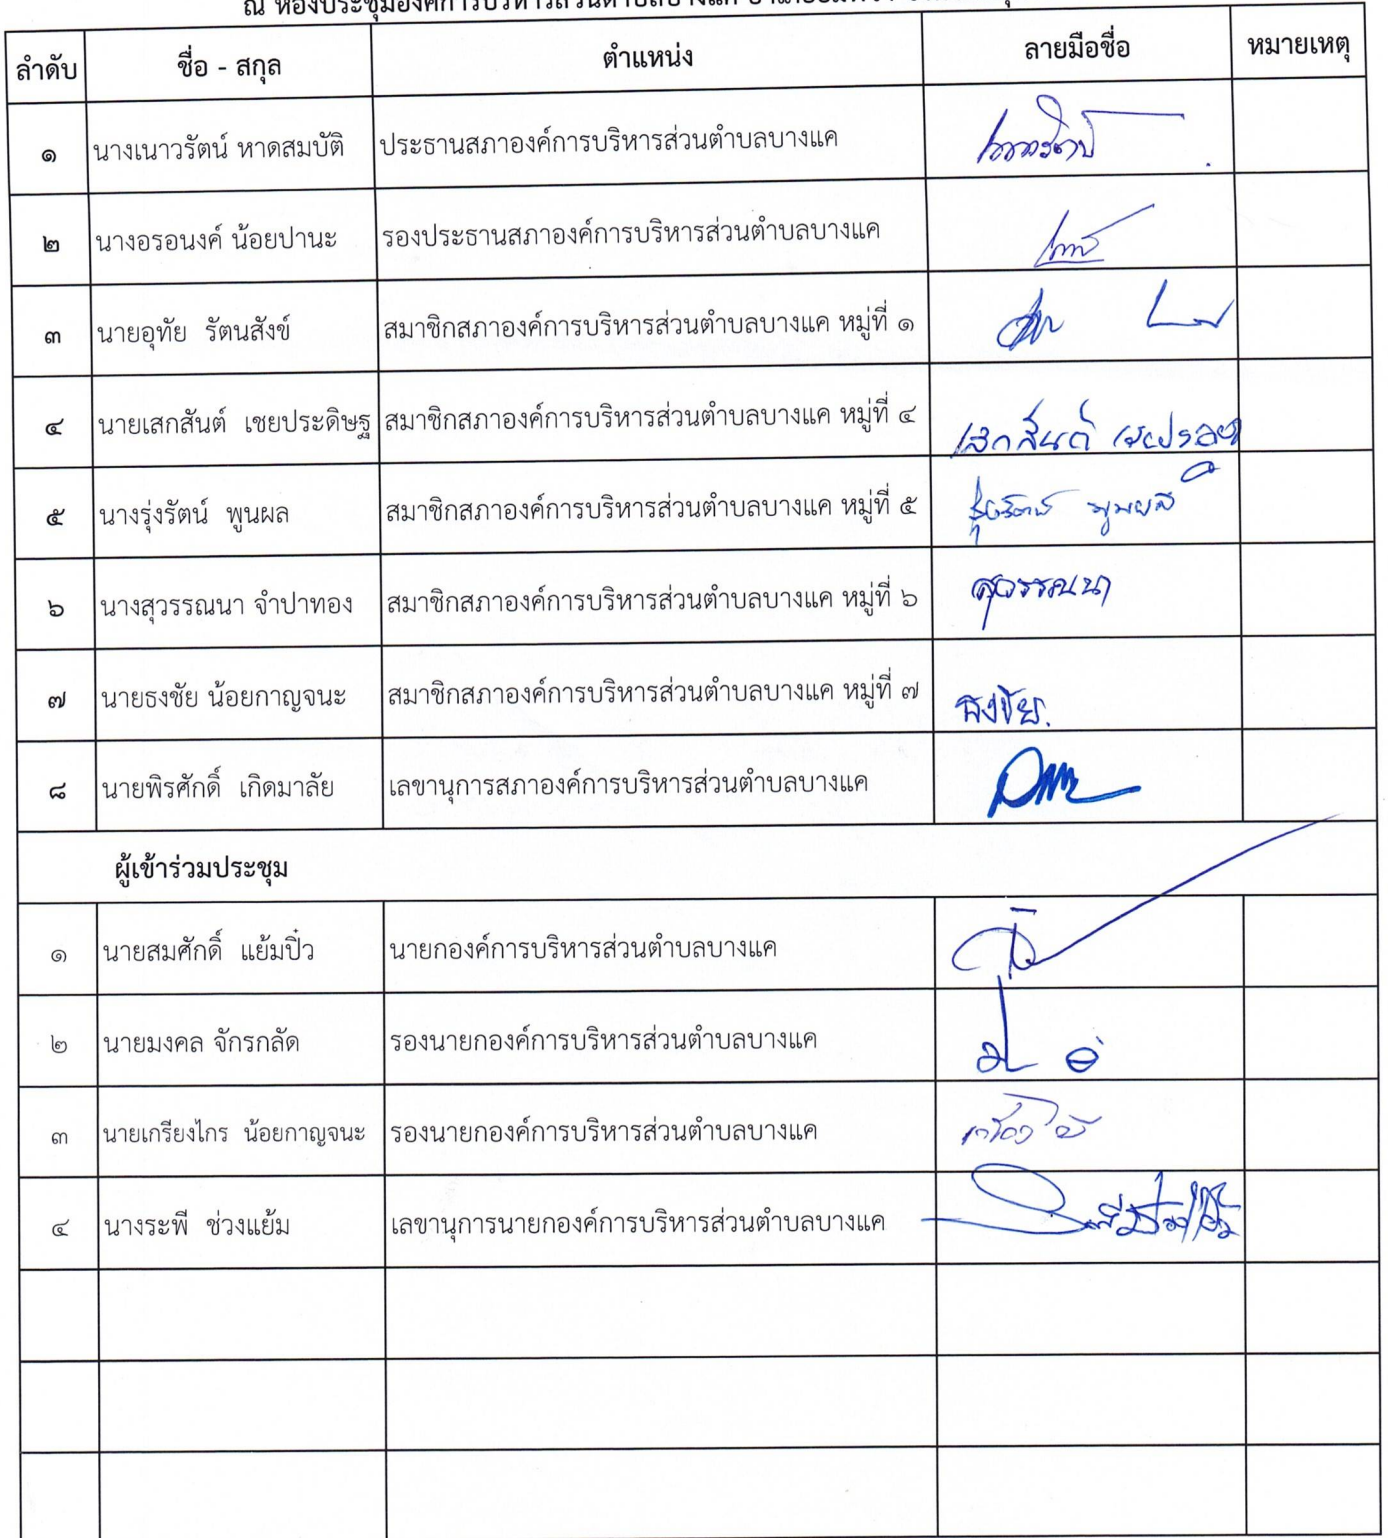 ณ ห้องประชุมองค์การบริหารส่วนตำบลบางแค
ลำดับ ชื่อ - สกุล ตำแหน่ง ลายมือชื่อ หมายเหตุ
๑ นางเนาวรัตน์ หาดสมบัติ ประธานสภาองค์การบริหารส่วนตำบลบางแค
๒ นางอรอนงค์ น้อยปานะ รองประธานสภาองค์การบริหารส่วนตำบลบางแค
๓ นายอุทัย รัตนสังข์ สมาชิกสภาองค์การบริหารส่วนตำบลบางแค หมู่ที่ ๑
๔ นายเสกสันต์ เชยประดิษฐ สมาชิกสภาองค์การบริหารส่วนตำบลบางแค หมู่ที่ ๔ เสกสันต์
๕ นางรุ่งรัตน์ พูนผล สมาชิกสภาองค์การบริหารส่วนตำบลบางแค หมู่ที่ ๕ รุ่งรัตน์ พูนผล
๖ นางสุวรรณนา จำปาทอง สมาชิกสภาองค์การบริหารส่วนตำบลบางแค หมู่ที่ ๖ สุวรรณนา
๗ นายธงชัย น้อยกาญจนะ สมาชิกสภาองค์การบริหารส่วนตำบลบางแค หมู่ที่ ๗ ธงชัย.
๘ นายพิรศักดิ์ เกิดมาลัย เลขานุการสภาองค์การบริหารส่วนตำบลบางแค
ผู้เข้าร่วมประชุม
๑ นายสมศักดิ์ แย้มปิ๋ว นายกองค์การบริหารส่วนตำบลบางแค
๒ นายมงคล จักรกลัด รองนายกองค์การบริหารส่วนตำบลบางแค
๓ นายเกรียงไกร น้อยกาญจนะ รองนายกองค์การบริหารส่วนตำบลบางแค
๔ นางระพี ช่วงแย้ม เลขานุการนายกองค์การบริหารส่วนตำบลบางแค